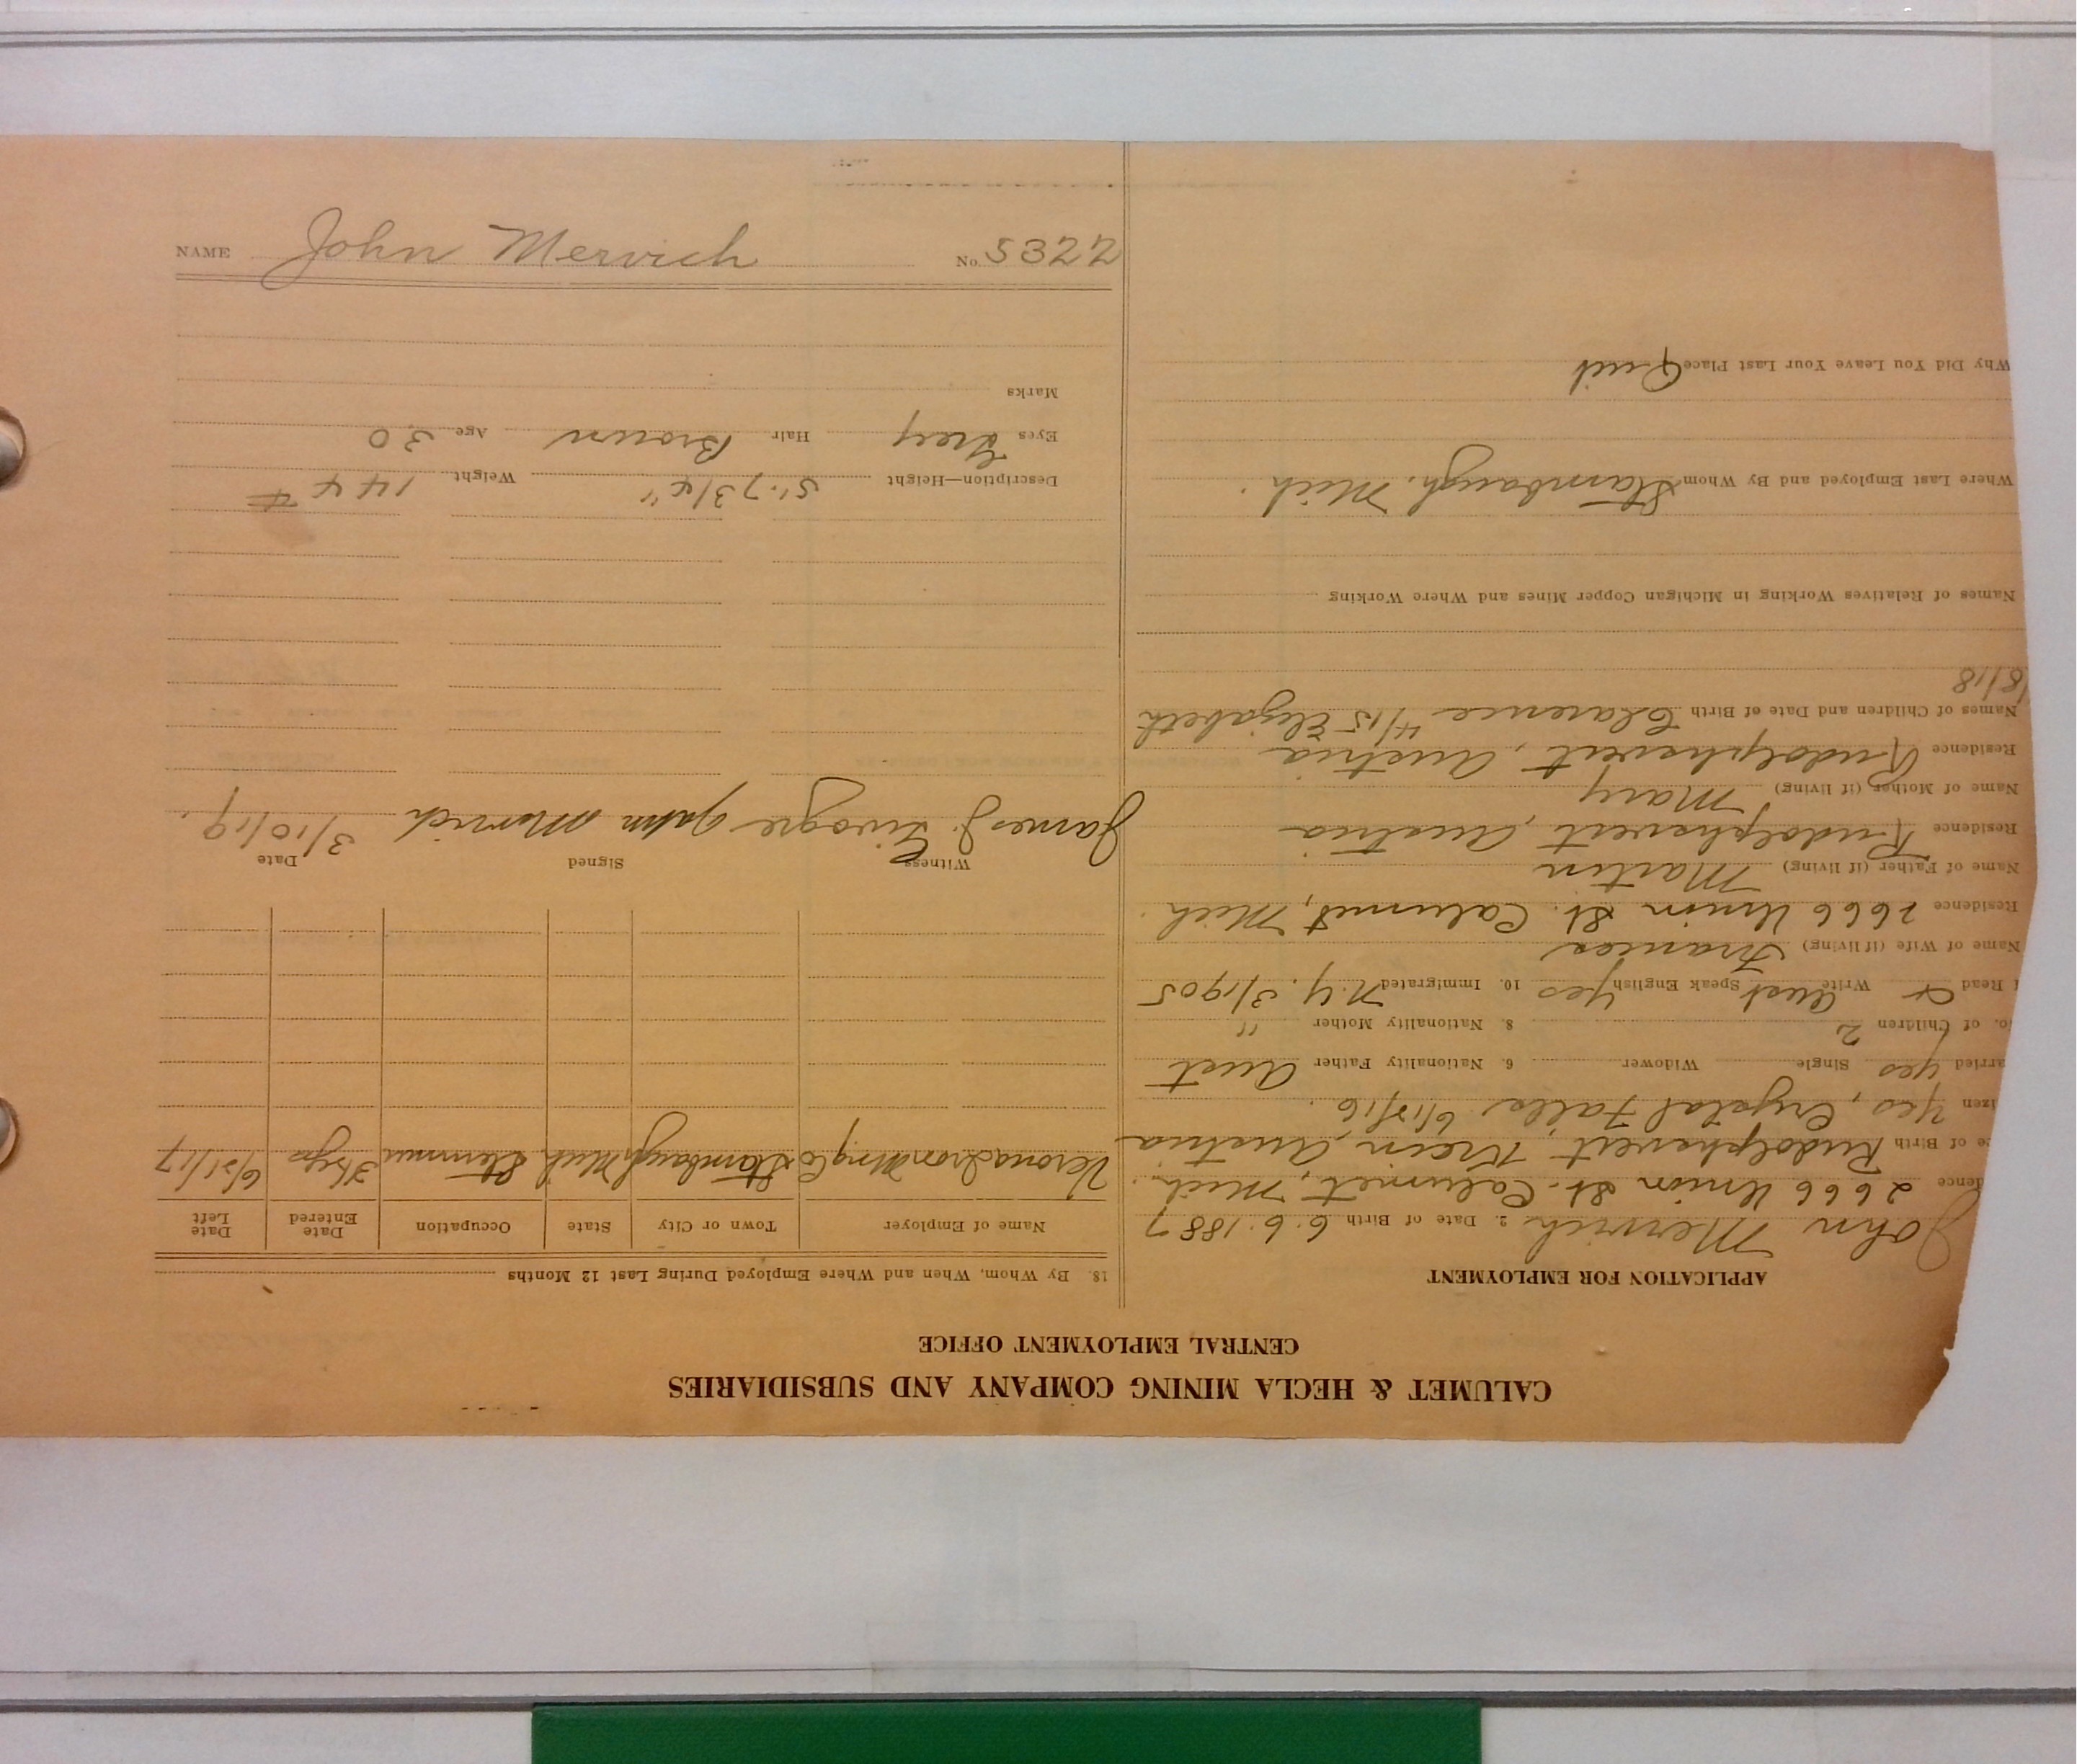 CALUMET & HECLA MINING COMPANY AND SUBSIDIARIES
CENTRAL EMPLOYMENT OFFICE
APPLICATION FOR EMPLOYMENT
John Mervich 2. Date of Birth 6.6.1887
dence 2666 Union St. Calumet, Mich.
ce of Birth Rudolphsvert, Krein, Austria
izen Yes, Crystal Falls 6/15/16.
arried Yes Single Widower 6. Nationality Father Aust
o. of Children 2 8. Nationality Mother "
Read & Write Aust Speak English Yes 10. Immigrated N.Y. 3/1905
Name of Wife (if living) Frances
Residence 2666 Union St. Calumet, Mich.
Name of Father (if living) Martin
Residence Rudolphsvert, Austria
Name of Mother (if living) Mary
Residence Rudolphsvert, Austria
Names of Children and Date of Birth Clarence 4/15 Elizabeth
/8/18
Names of Relatives Working in Michigan Copper Mines and Where Working
Where Last Employed and By Whom Stambaugh, Mich.
Why Did You Leave Your Last Place Quit
18. By Whom, When and Where Employed During Last 12 Months
Name of Employer Town or City State Occupation Date Entered Date Left
Verona Iron Mng Co Stambaugh Mich 6/21/17
Witness Signed Date
James J. John Mervich 3/10/19.
Description—Height 5'-7 3/4" Weight 144 #
Eyes Grey Hair Brown Age 30
Marks
NAME John Mervich No. 5322